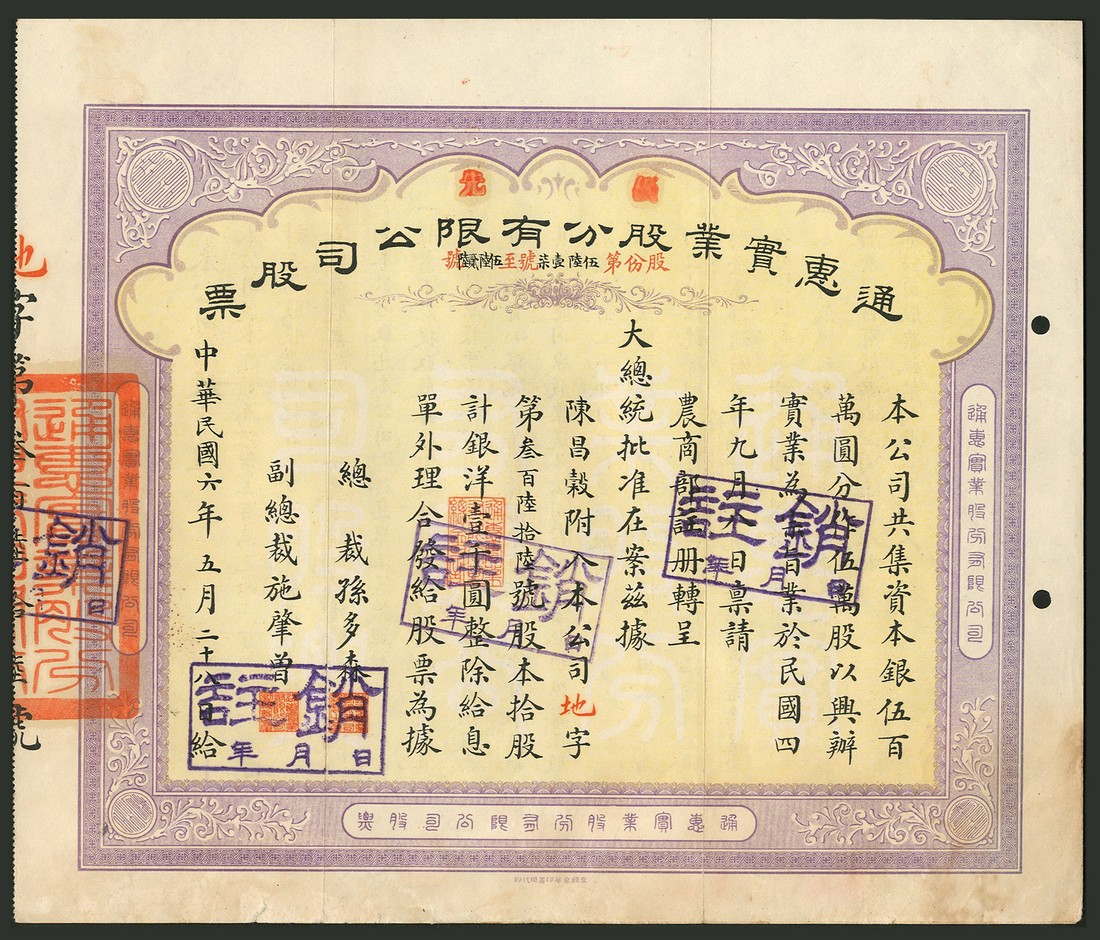 優先
通惠實業股分有限公司股票
股份第伍陸壹柒號至伍陸貳陸號
本公司共集資本銀伍百
萬圓分作伍萬股以興辦
實業為宗旨業於民國四
年九月 日稟請
農商部註冊轉呈
大總統批准在案茲據
陳昌穀附入本公司地字
第叁百陸拾陸號股本拾股
計銀洋壹千圓整除給息
單外理合發給股票為據
總裁孫多森
副總裁施肇曾
中華民國六年五月二十八日給
註銷
年月日
註銷
年月日
註銷
年月日
銷
日
地字第叁百陸拾陸號
通惠實業股分有限公司
通惠實業股分有限公司
通惠實業股分有限公司股票